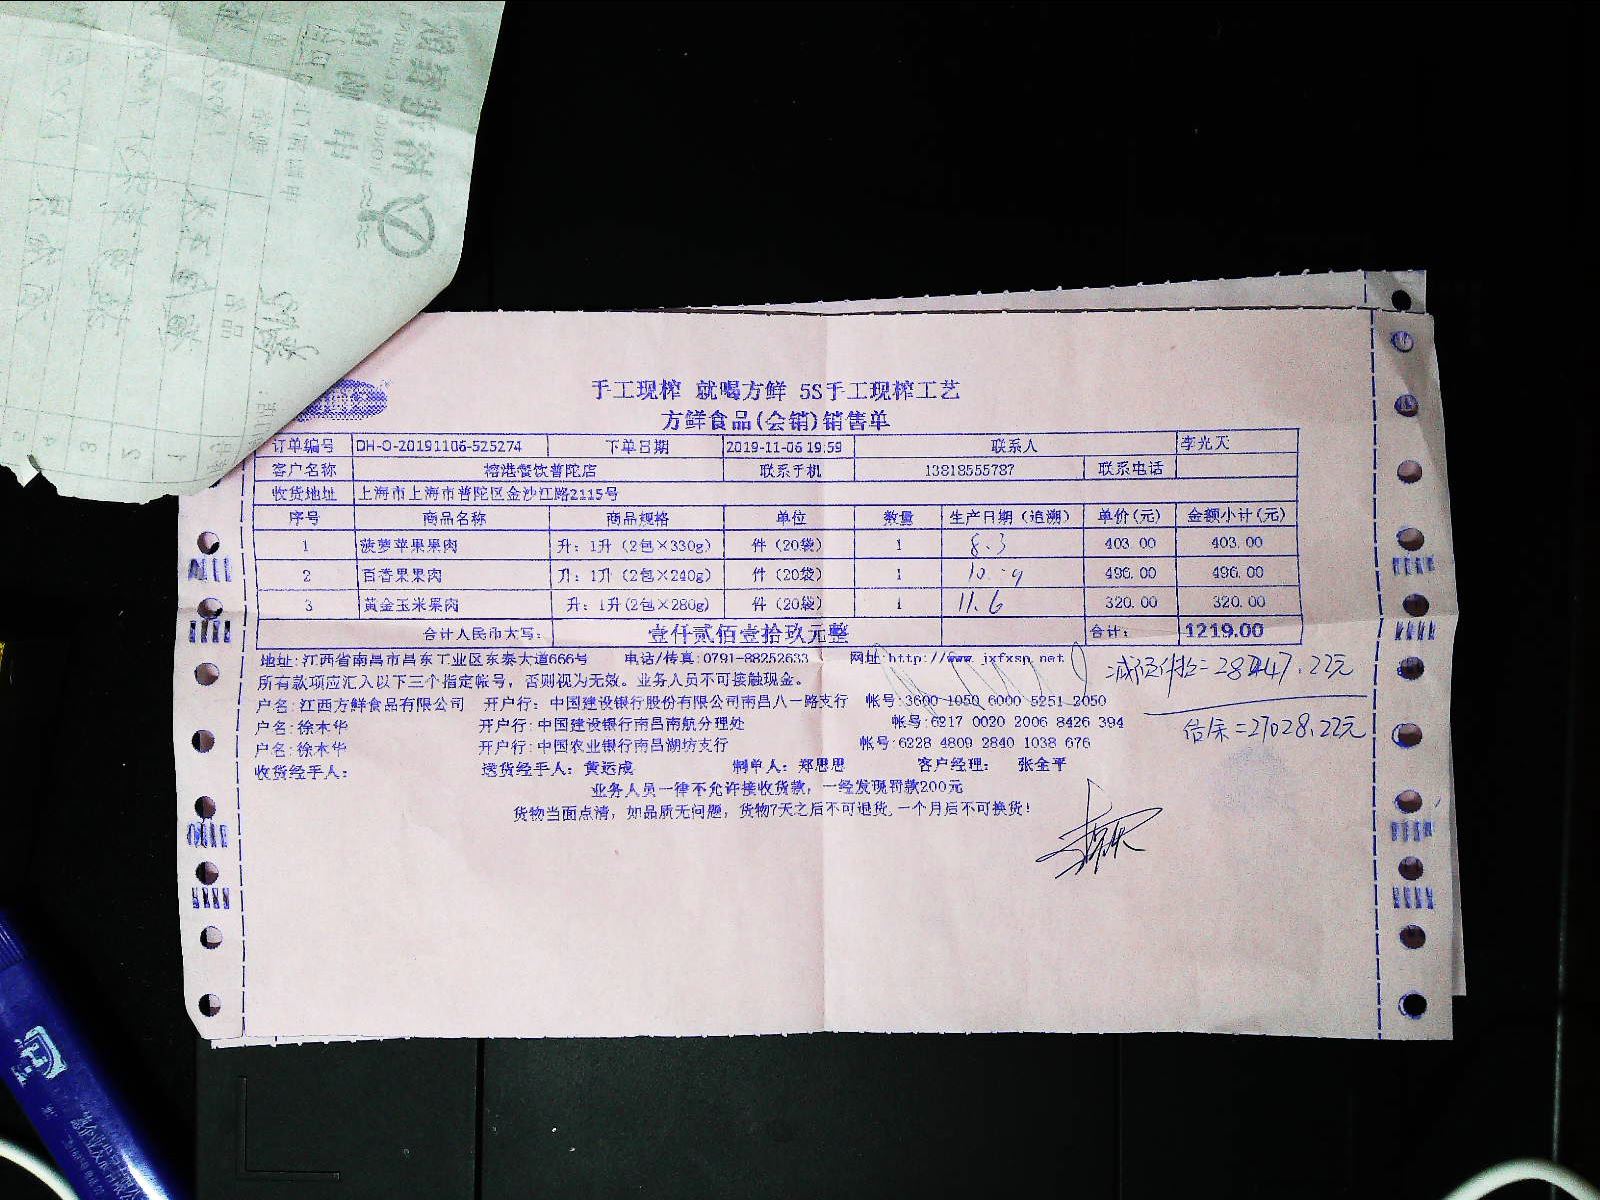 手工现榨 就喝方鲜 5S手工现榨工艺
方鲜食品(会销)销售单
订单编号 DH-O-20191106-525274 下单日期 2019-11-06 19:59 联系人 李光天
客户名称 榕港餐饮普陀店 联系手机 13818555787 联系电话
收货地址 上海市上海市普陀区金沙江路2115号
序号 商品名称 商品规格 单位 数量 生产日期（追溯） 单价(元) 金额小计(元)
1 菠萝苹果果肉 升：1升（2包×330g） 件（20袋） 1 8.3 403.00 403.00
2 百香果果肉 升：1升（2包×240g） 件（20袋） 1 10.9 496.00 496.00
3 黄金玉米果肉 升：1升(2包×280g) 件（20袋） 1 11.6 320.00 320.00
合计人民币大写： 壹仟贰佰壹拾玖元整 合计： 1219.00
地址:江西省南昌市昌东工业区东泰大道666号 电话/传真:0791-88252633 网址:http://www.jxfxsp.net
所有款项应汇入以下三个指定帐号，否则视为无效。业务人员不可接触现金。
户名:江西方鲜食品有限公司 开户行：中国建设银行股份有限公司南昌八一路支行 帐号:3600 1050 6000 5251 2050
户名:徐本华 开户行:中国建设银行南昌南航分理处 帐号:6217 0020 2006 8426 394
户名:徐本华 开户行:中国农业银行南昌湖坊支行 帐号:6228 4809 2840 1038 676
收货经手人： 送货经手人：黄远成 制单人：郑思思 客户经理： 张全平
业务人员一律不允许接收货款，一经发现罚款200元
货物当面点清，如品质无问题，货物7天之后不可退货,一个月后不可换货!
=27028.22元